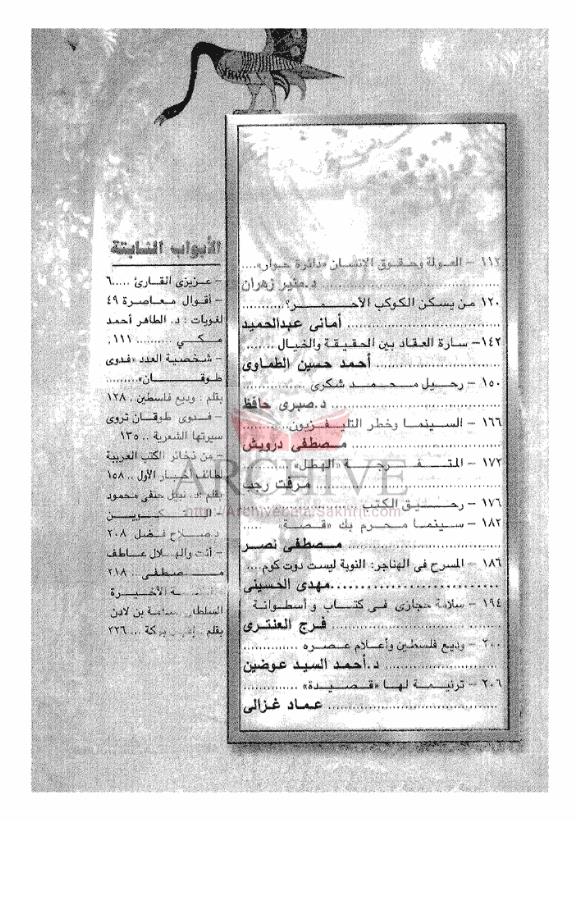 ١١٢ - العولة وحقوق الإنسان «دائرة حوار»....
د.منير زهران
١٢٠ من يسكن الكوكب الأحمـــر؟..........
أمانى عبدالحميد
١٤٢- سارة العقاد بين الحقيقة والخيال .......
أحمد حسين الطماوى
١٥٠ - رحـيـل مـحـمـد شكرى ................
د.صبرى حافظ
١٦٦ - السـيـنـمـا وخطر التليـفـزيون...........
مـصطفى درويش
١٧٢ - المتـفـرجـة «البـهـطل»
مرفت رجب
١٧٦ - رحـيق الكتب
١٨٢ - سـيـنمـا مـحـرم بك «قـصـة» .....
مـصطفى نصـر
١٨٦ - المسرح فى الهناجر: النوبة ليست دوت كوم....
مهدى الحسينى
١٩٤ - سلامة حجازى فـى كـتـاب وأسطـوانـة
فـرج العنتـرى
٢٠٠ - وديع فلسطين وأعـلام عـصـره .............
د.أحمد السيد عوضين
٢٠٦ - ترنيـمـة لـهـا «قـصـيـدة» .............
عمـاد غـزالى
الأبواب الثابتة
- عـزيزى القـارئ .....٦
- أقوال معـاصرة ٤٩
لغويات : د. الطاهر أحمد
مـكـى ........... ١١١.
- شـخصية العدد «فدوى
طوقـــــان»........
بقلم : وديع فلسطين . ١٢٨
- فـدوى طوقـان تروى
سيرتها الشعرية .. ١٣٥
- من ذخائر الكتب العربية
لطائف أخبار الأول .. ١٥٨
بقلم : د. نبيل حنفى محمود
د.صـلاح فـضل ٢٠٨
- أنت والهـلال عـاطف
مــصطفى .. ٢١٨
الأخـيـرة
بقلم : إقبال بركة ... ٢٢٦
ARCHIVE
http://Archivebeta.Sakhrit.com